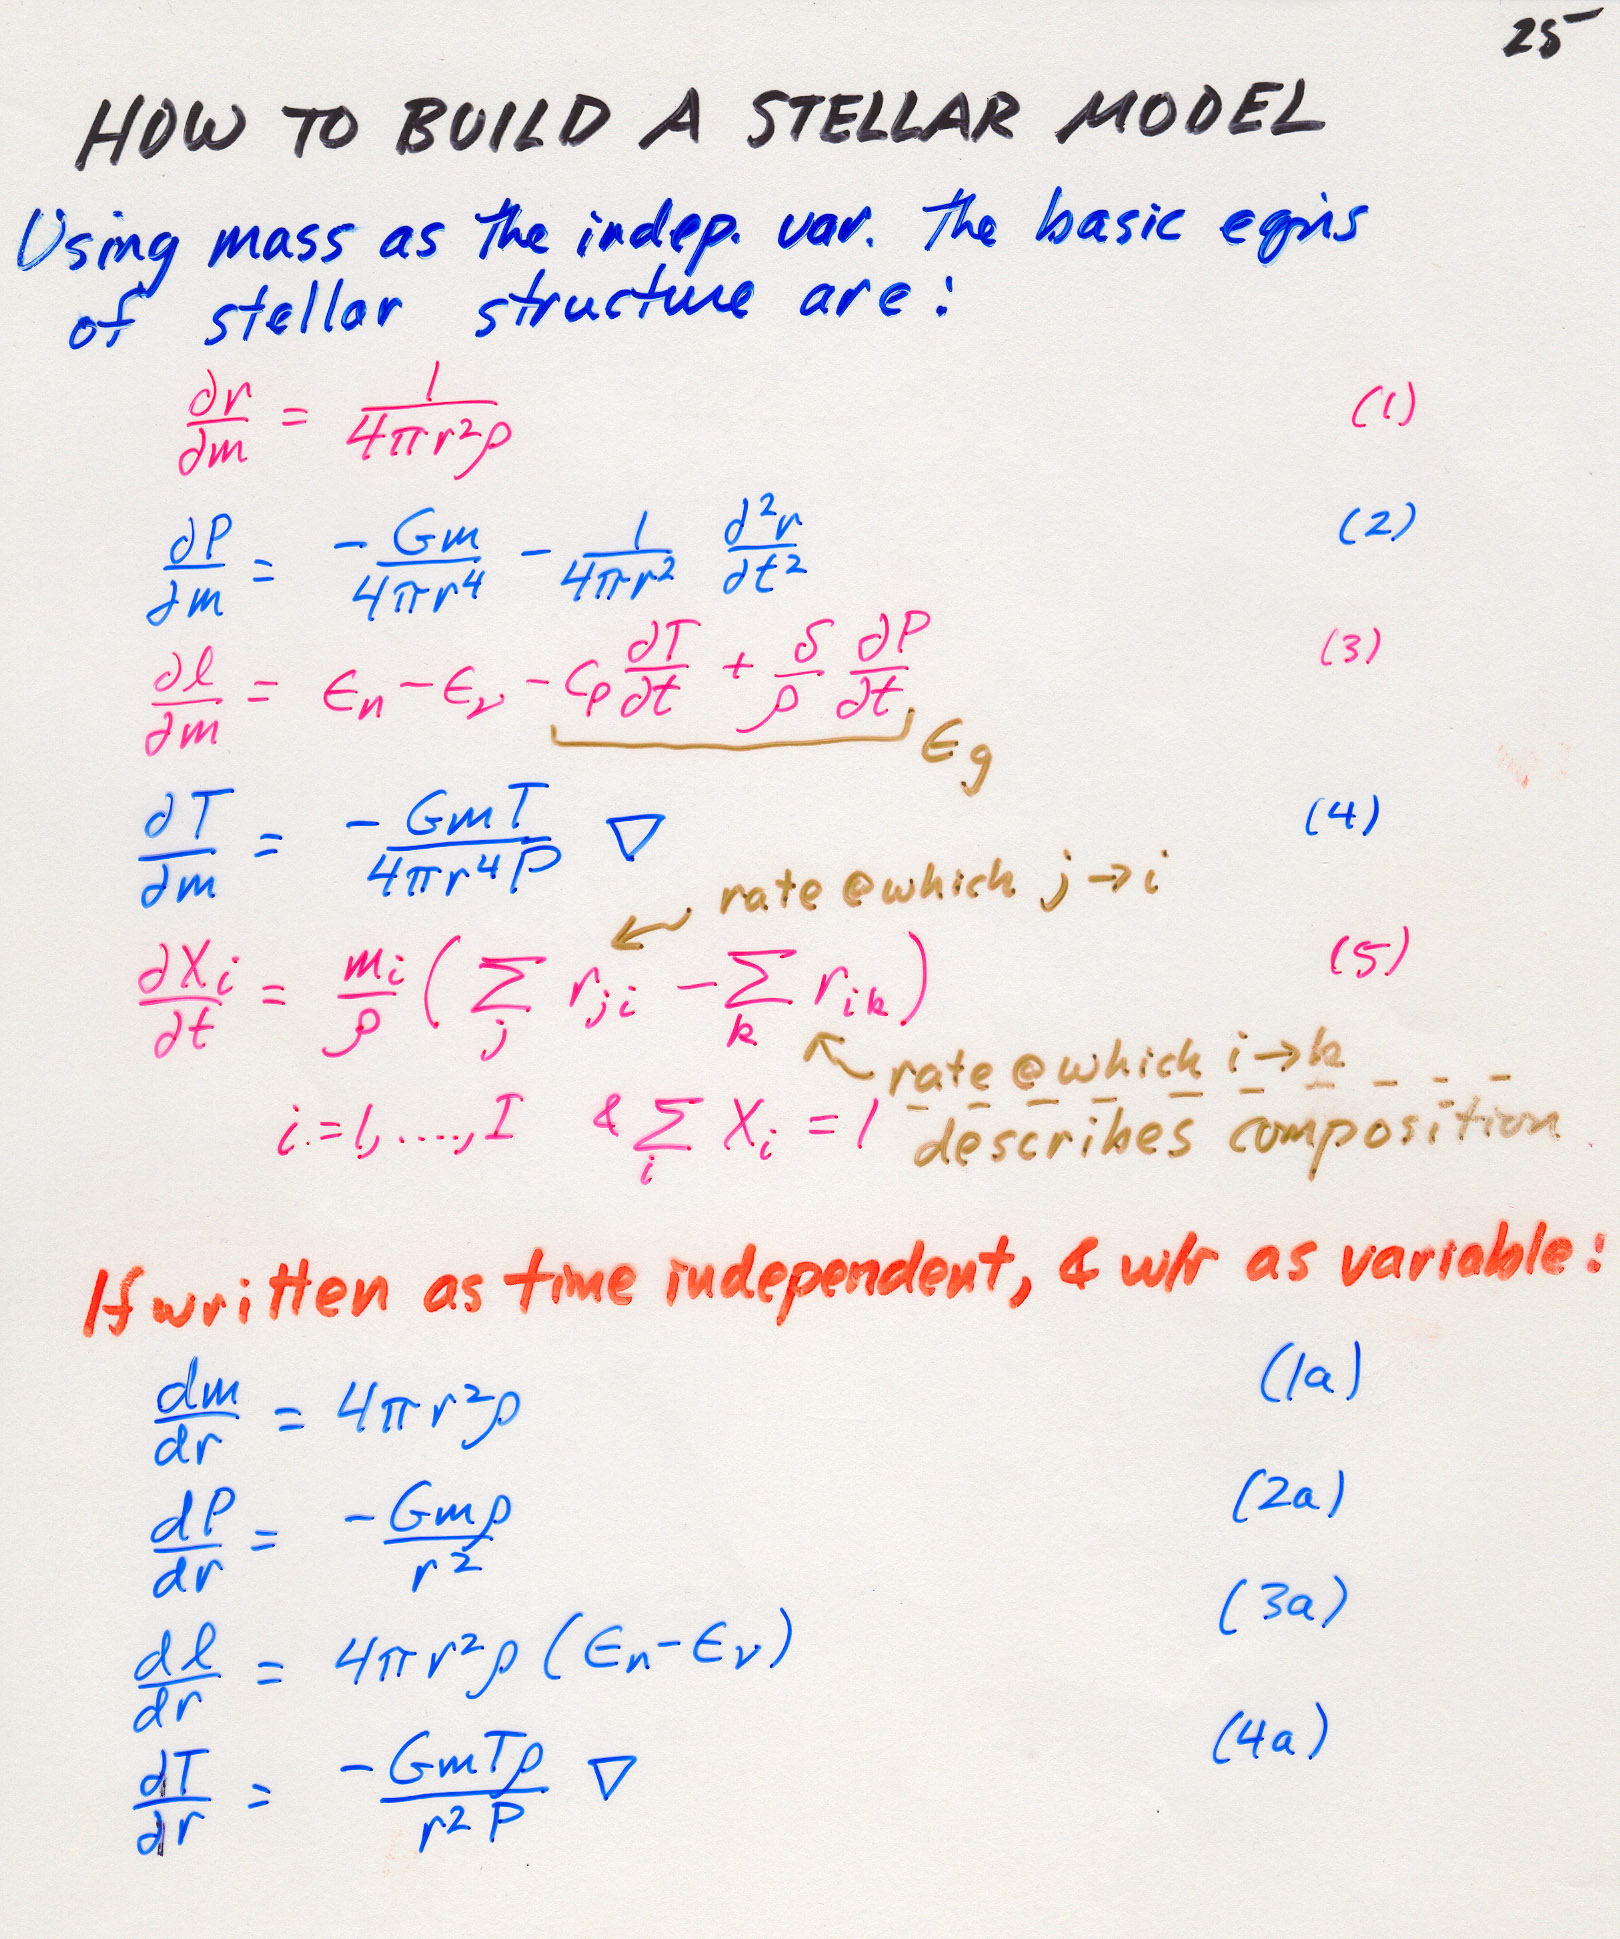 25
HOW TO BUILD A STELLAR MODEL
Using mass as the indep. var. the basic eqn's
of stellar structure are:
∂r/∂m = 1/(4πr²ρ) (1)
∂P/∂m = -Gm/(4πr⁴) - 1/(4πr²) ∂²r/∂t² (2)
∂l/∂m = ϵₙ - ϵᵥ - Cₚ ∂T/∂t + δ/ρ ∂P/∂t (3)
ϵg
∂T/∂m = -GmT/(4πr⁴P) ∇ (4)
rate @ which j → i
∂Xᵢ/∂t = mᵢ/ρ ( Σⱼ rⱼᵢ - Σₖ rᵢₖ ) (5)
rate @ which i → k
i = 1, ...., I & Σᵢ Xᵢ = 1 describes composition
If written as time independent, & w/r as variable:
dm/dr = 4πr²ρ (1a)
dP/dr = -Gmρ/r² (2a)
dl/dr = 4πr²ρ (ϵₙ - ϵᵥ) (3a)
dT/dr = -GmTρ/(r²P) ∇ (4a)